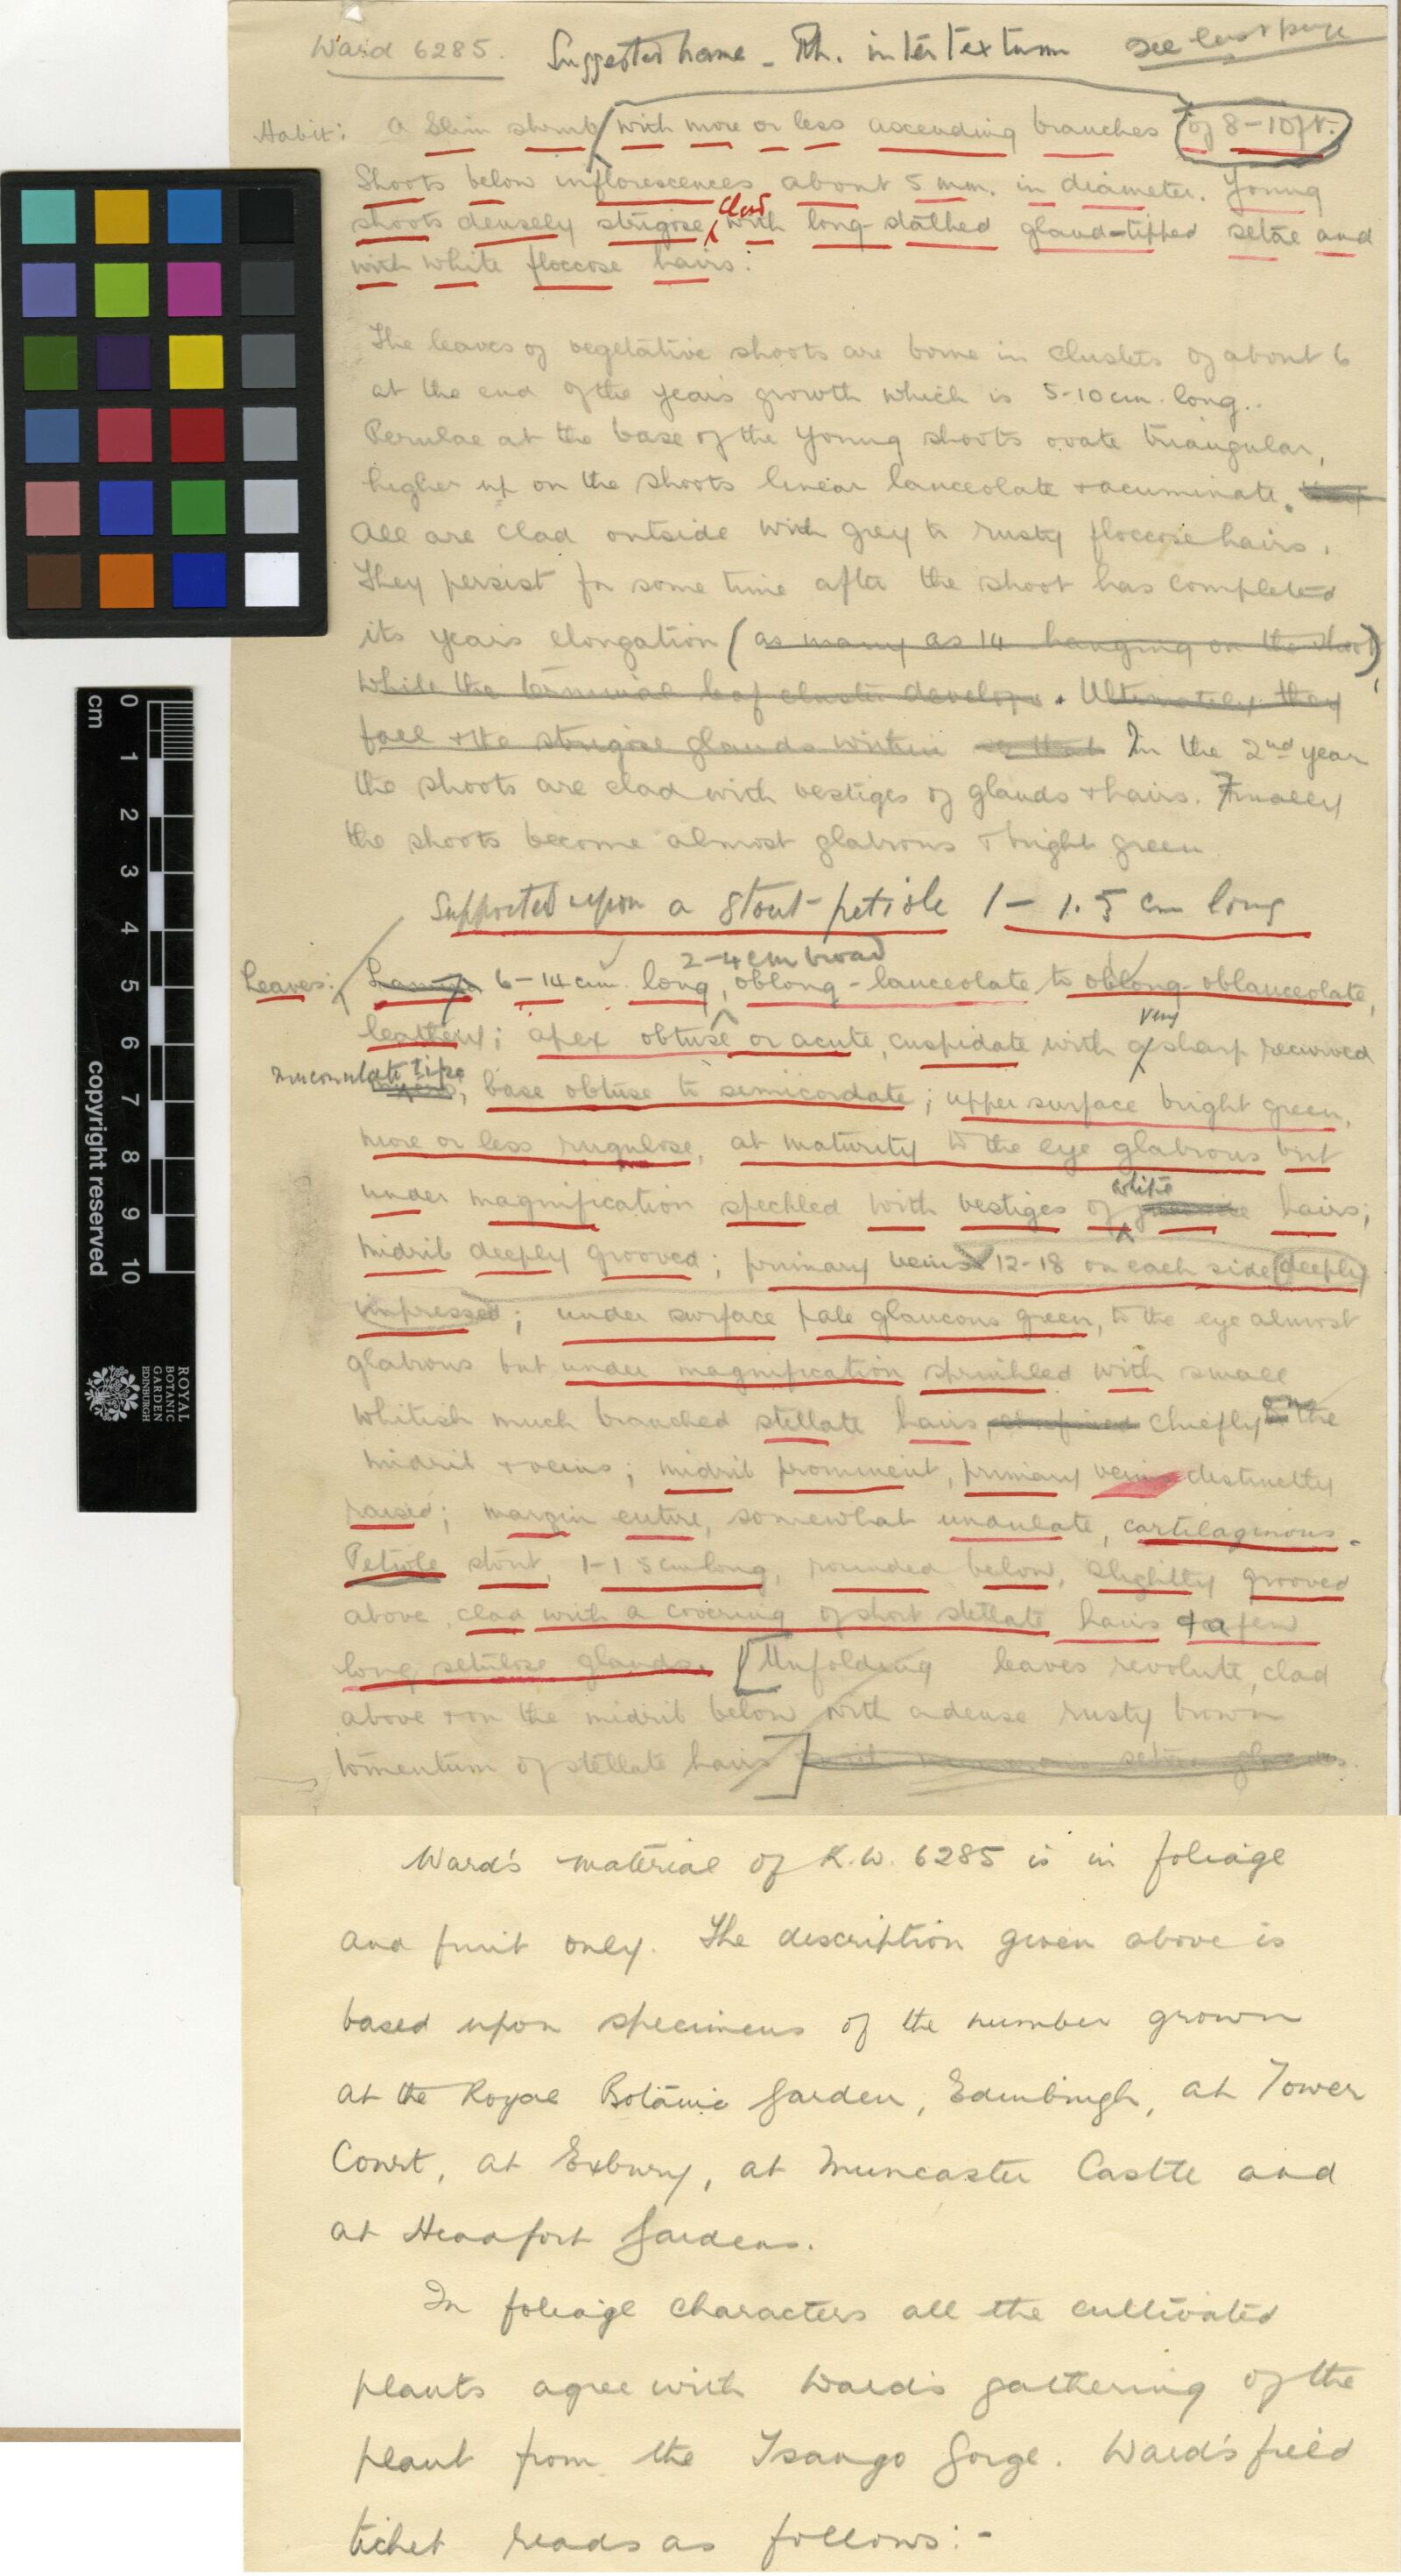 Ward 6285. Suggested name - Rh. intertextum see last page
Habit: A slim shrub with more or less ascending branches of 8-10ft.
Shoots below inflorescences about 5 mm. in diameter. Young
clad
shoots densely strigose, with long-stalked gland-tipped setae and
with white floccose hairs.
The leaves of vegetative shoots are borne in clusters of about 6
at the end of the years growth which is 5-10 cm. long..
Perulae at the base of the young shoots ovate triangular,
higher up on the shoots linear lanceolate + acuminate.
All are clad outside with grey to rusty floccose hairs.
They persist for some time after the shoot has completed
its years elongation (as many as 14 hanging on the shoot)
while the terminal leaf cluster develops. Ultimately they
fall + the strigose glands within In the 2nd year
the shoots are clad with vestiges of glands + hairs. Finally
the shoots become almost glabrous + bright green
Supported upon a stout petiole 1 - 1.5 cm long
2-4 cm broad
Leaves: Lamina 6-14 cm. long, oblong-lanceolate to oblong oblanceolate,
very
leathery; apex obtuse or acute, cuspidate with a sharp recurved
mucronulate tips, base obtuse to semicordate; upper surface bright green,
more or less rugulose, at maturity to the eye glabrous but
white
under magnification speckled with vestiges of hairs;
midrib deeply grooved; primary veins 12-18 on each side deeply
impressed; under surface pale glaucous green, to the eye almost
glabrous but under magnification sprinkled with small
whitish much branched stellate hairs, confined chiefly on the
midrib + veins; midrib prominent, primary veins distinctly
raised; margin entire, somewhat undulate, cartilaginous.
Petiole stout, 1-1.5 cm long, rounded below, slightly grooved
above, clad with a covering of short stellate hairs & a few
long setulose glands. [Unfolding leaves revolute, clad
above + on the midrib below with a dense rusty brown
tomentum of stellate hairs] with numerous setose glands.
Ward's material of K.W. 6285 is in foliage
and fruit only. The description given above is
based upon specimens of the number grown
at the Royal Botanic Garden, Edinburgh, at Tower
Court, at Exbury, at Muncaster Castle and
at Headfort Gardens.
In foliage characters all the cultivated
plants agree with Ward's gathering of the
plant from the Tsango Gorge. Ward's field
ticket reads as follows:-
0 1 2 3 4 5 6 7 8 9 10
cm
copyright reserved
ROYAL
BOTANIC
GARDEN
EDINBURGH